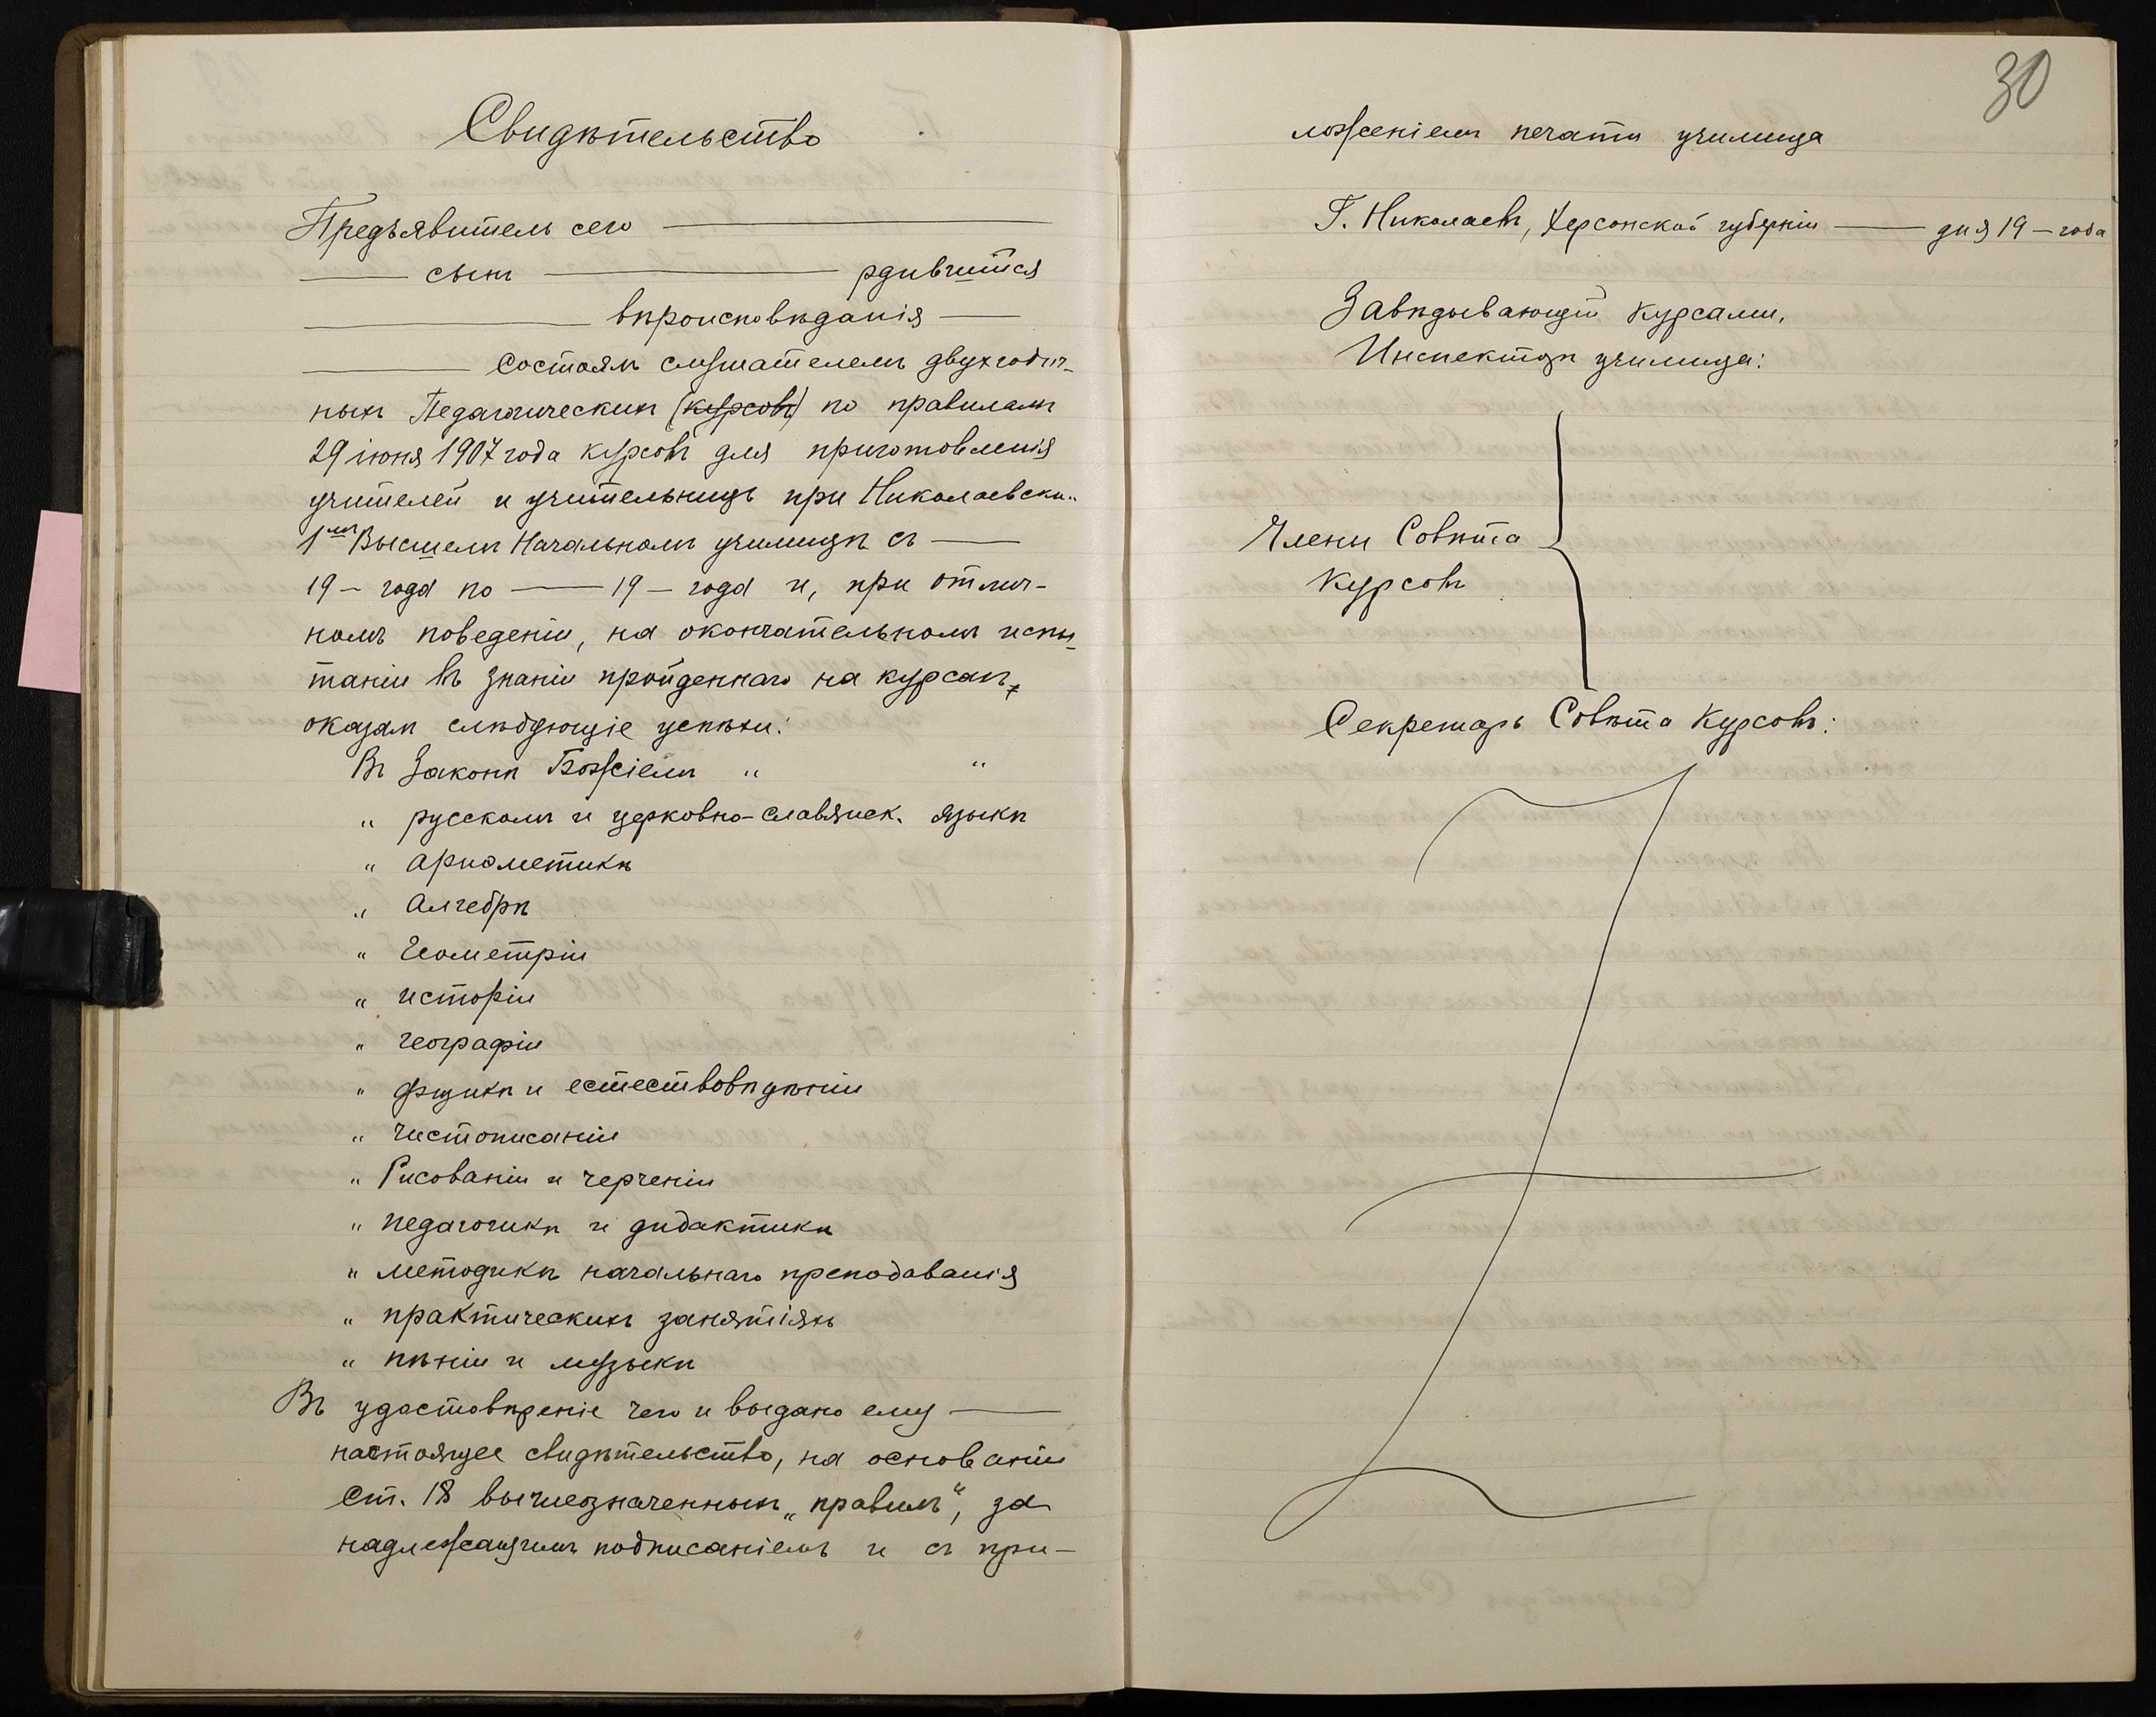 Свидѣтельство
Предъявитель сего ——
—— сынъ —— рдившійся
—— вѣроисповѣданія ——
—— состоялъ слушателемъ двухгодич-
ныхъ Педагогическихъ (курсовъ) по правиламъ
29 іюня 1907 года курсовъ для приготовленія
учителей и учительницъ при Николаевск..
1мъ Высшемъ Начальномъ училищѣ съ ——
19 — года по —— 19 — года и, при отлич-
номъ поведеніи, на окончательномъ испы-
таніи въ знаніи пройденнаго на курсахъ,
оказалъ слѣдующіе успѣхи:
Въ Законѣ Божіемъ " "
" русскомъ и церковно-славянск. языкѣ
" Ариѳметикѣ
" Алгебрѣ
" Геометріи
" исторіи
" географіи
" физикѣ и естествовѣдѣніи
" Чистописаніи
" Рисованіи и черченіи
" педагогикѣ и дидактикѣ
" методикѣ начальнаго преподаванія
" практическихъ занятіяхъ
" пѣніи и музыкѣ
Въ удостовѣреніе чего и выдано ему ——
настоящее свидѣтельство, на основаніи
ст. 18 вышеозначенныхъ „правилъ“, за
надлежащимъ подписаніемъ и съ при-
30
ложеніемъ печати училища
Г. Николаевъ, Херсонской губерніи —— дня 19 — года
Завѣдывающій курсами,
Инспекторъ училища:
Члены Совѣта
Курсовъ
Секретарь Совѣта Курсовъ: